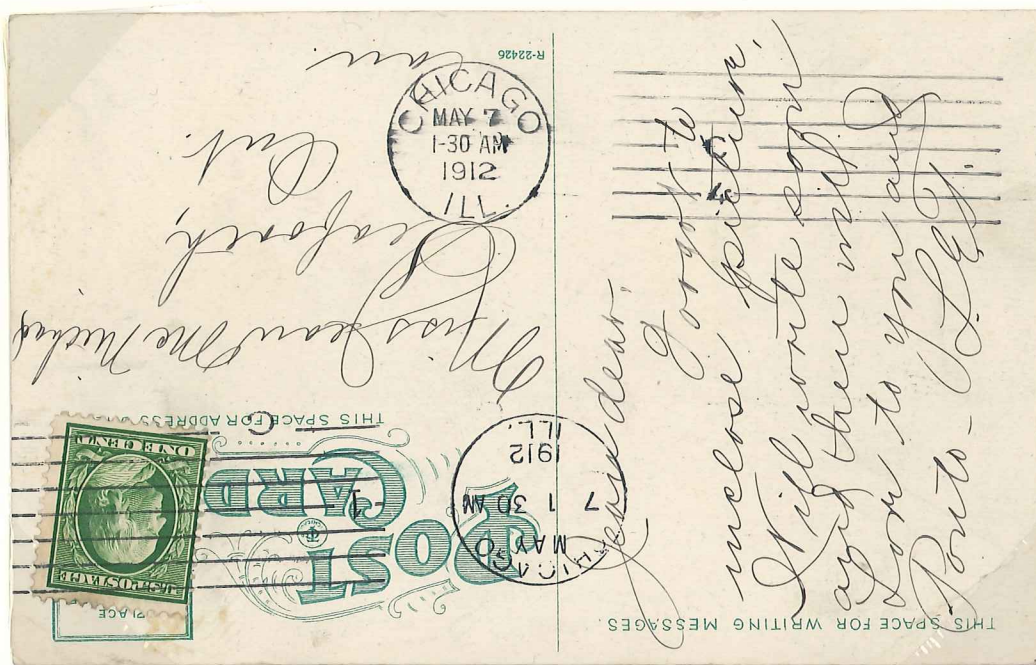 THIS SPACE FOR WRITING MESSAGES.
Jean dear.
Forgot to
inclose picture.
Will write soon
and then will
Love to you and
Ponto - L.E.F.
POST
CARD
THIS SPACE FOR ADDRESS
PLACE
U.S. POSTAGE
ONE CENT
CHICAGO
MAY
7 1 30 AM
1912
ILL.
Miss Jean Mc
Seaforth,
Ont.
Can
CHICAGO
MAY 7
1-30 AM
1912
ILL.
R-22426